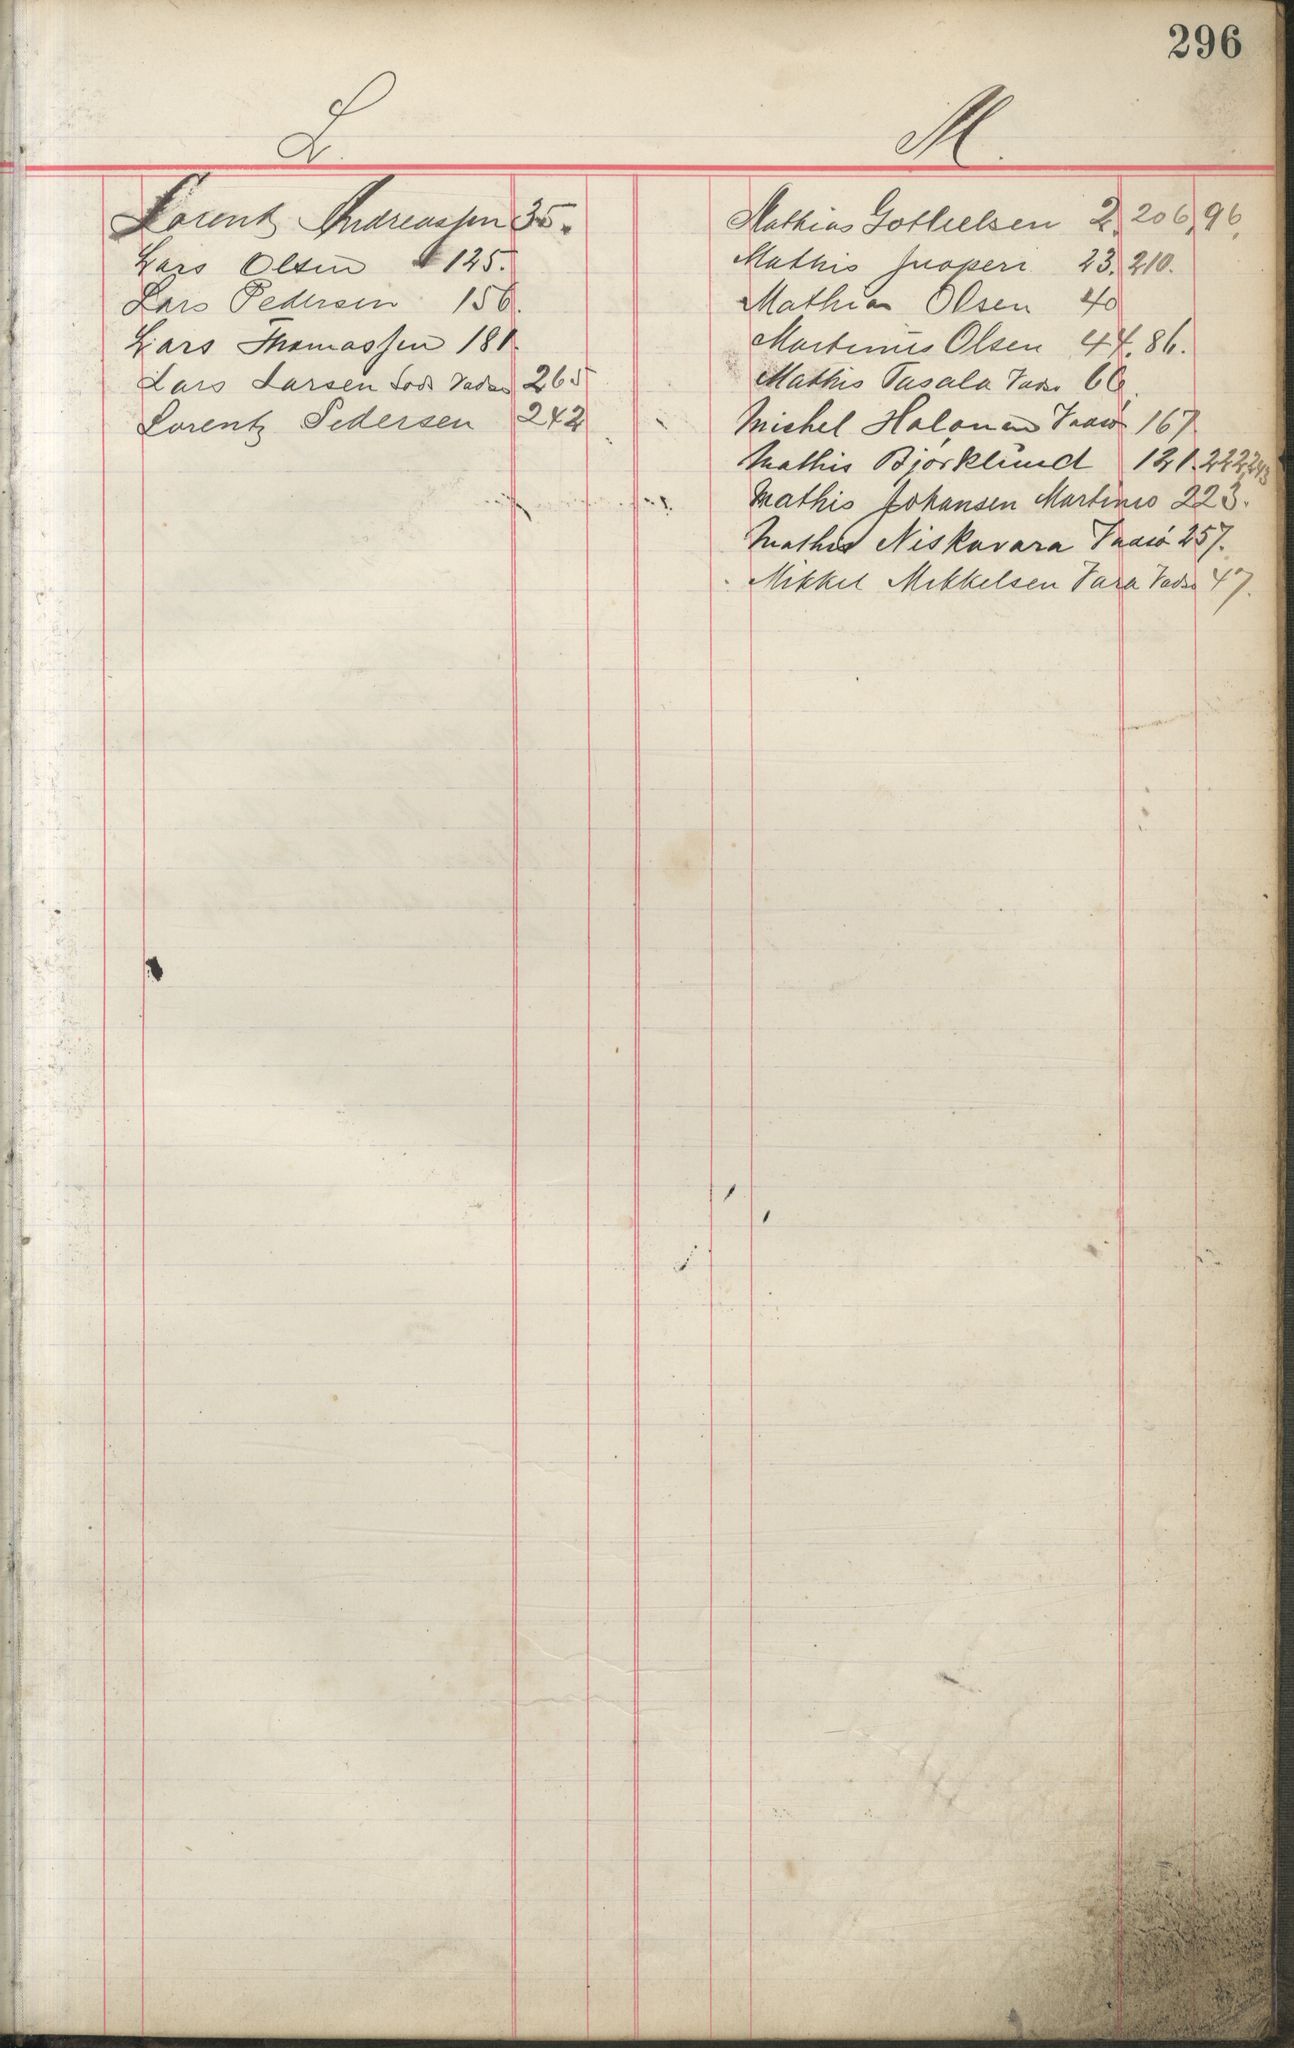 296
L.
Lorentz Andreassen 35.
Lars Olsen 125.
Lars Pedersen 156.
Lars Thomassen 181.
Lars Larsen Lods Vadsø 265
Lorentz Pedersen 242
M.
Mathias Gotlielsen 2, 206, 96,
Mathis Juoperi 23. 210.
Mathias Olsen 40
Martinus Olsen 44. 86.
Mathis Tasala Vadsø 66.
Michel Halonen Vadsø 167
Mathis Bjørklund 121. 222, 243
Mathis Johansen Martinus 223.
Mathis Niskavara Vadsø 257.
Mikkel Mikkelsen Vara Vadsø 47.